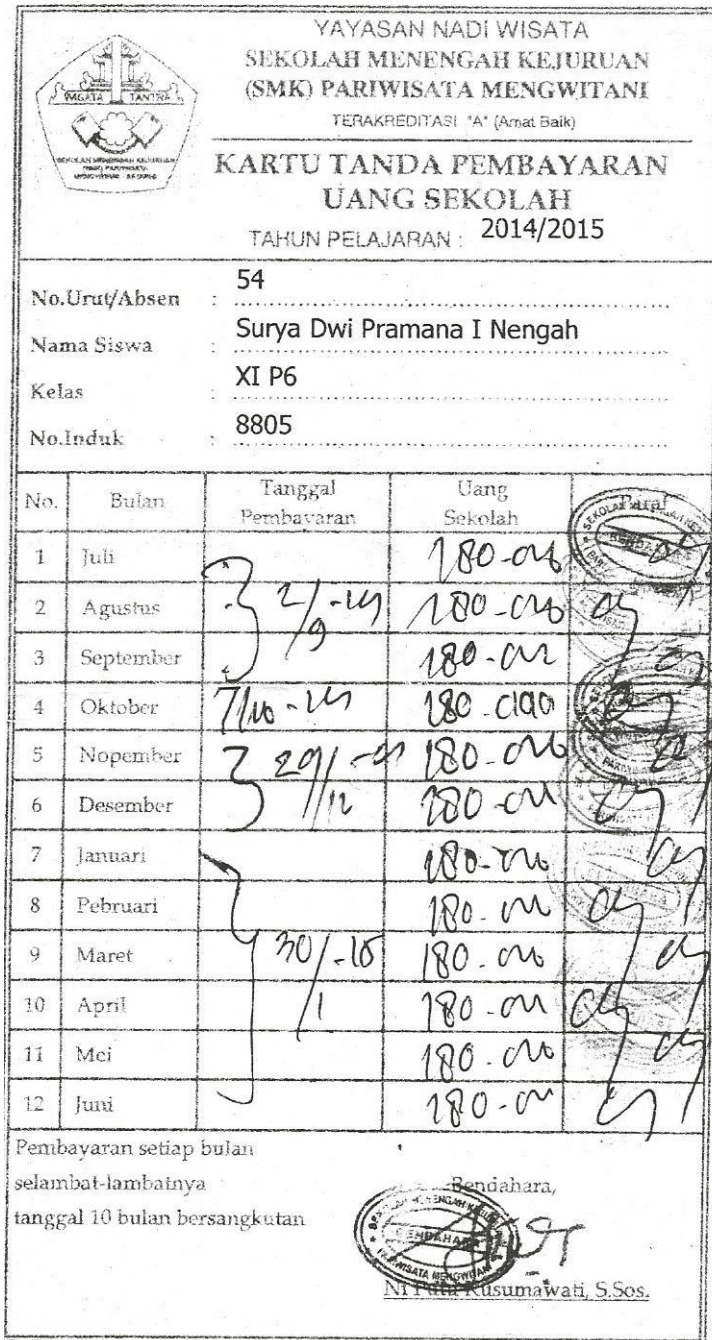 YAYASAN NADI WISATA
SEKOLAH MENENGAH KEJURUAN
(SMK) PARIWISATA MENGWITANI
TERAKREDITASI "A" (Amat Baik)
WAGATA TANTRA
SEKOLAH MENENGAH KEJURUAN
(SMK) PARIWISATA
KARTU TANDA PEMBAYARAN
UANG SEKOLAH
TAHUN PELAJARAN : 2014/2015
No.Urut/Absen : 54
Nama Siswa : Surya Dwi Pramana I Nengah
Kelas : XI P6
No.Induk : 8805
No. Bulan Tanggal Pembayaran Uang Sekolah Paraf
1 Juli 180.000
2 Agustus 2/9 -14 180.000
3 September 180.000
4 Oktober 7/10 -14 180.000
5 Nopember 29/12 180.000
6 Desember 180.000
7 Januari 180.000
8 Pebruari 180.000
9 Maret 30/1 -15 180.000
10 April 180.000
11 Mei 180.000
12 Juni 180.000
Pembayaran setiap bulan
selambat-lambatnya
tanggal 10 bulan bersangkutan
Bendahara,
BENDAHARA
Ni Putu Kusumawati, S.Sos.